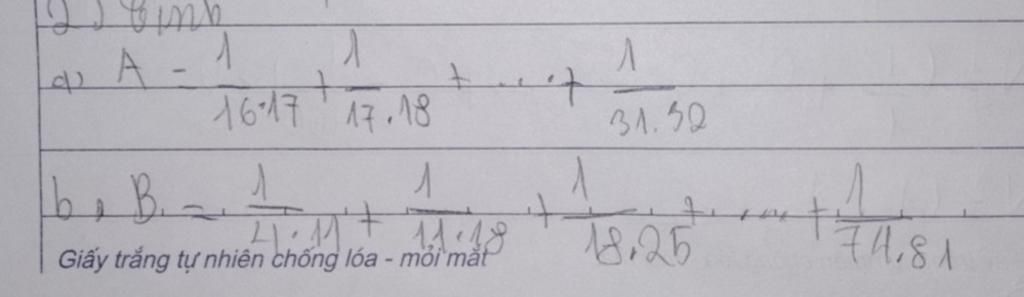 2) Tính
a) A = 1/16.17 + 1/17.18 + ... + 1/31.32
b, B = 1/4.11 + 1/11.18 + 1/18.25 + .... + 1/74.81
Giấy trắng tự nhiên chống lóa - mỏi mắt